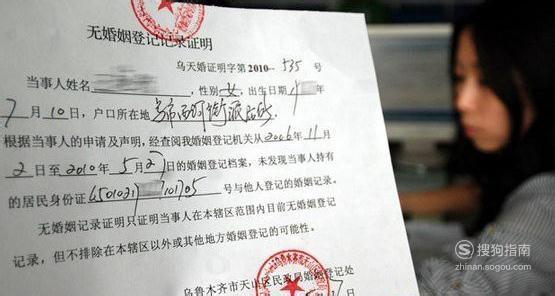 无婚姻登记记录证明
乌天婚证明字第2010-535号
当事人姓名，性别女，出生日期年
7月10日，户口所在地
根据当事人的申请及声明，经查阅我婚姻登记机关从2006年11月
2日至2010年5月27日的婚姻登记档案，未发现当事人持有
的居民身份证号与他人登记的婚姻记录。
无婚姻记录证明只证明当事人在本辖区范围内目前无婚姻登记
记录，但不排除在本辖区以外或其他地方婚姻登记的可能性。
乌鲁木齐市天山区民政局婚姻登记处
搜狗指南
zhinan.sogou.com